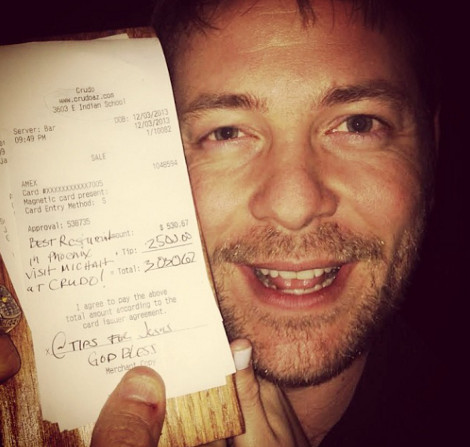 Crudo
www.crudoaz.com
3603 E Indian School
DOB: 12/03/2013
Server: Bar 12/03/2013
09:49 PM 1/10082
SALE
1048594
AMEX
Card #XXXXXXXXXXX7005
Magnetic card present:
Card Entry Method: S
Approval: 538735
Amount: $ 530.67
+ Tip: 2500.00
= Total:
BEST RESTAURANT
IN PHOENIX
VISIT MICHAEL
AT CRUDO!
I agree to pay the above
total amount according to the
card issuer agreement.
x @TIPS FOR JESUS
GOD BLESS
Merchant Copy